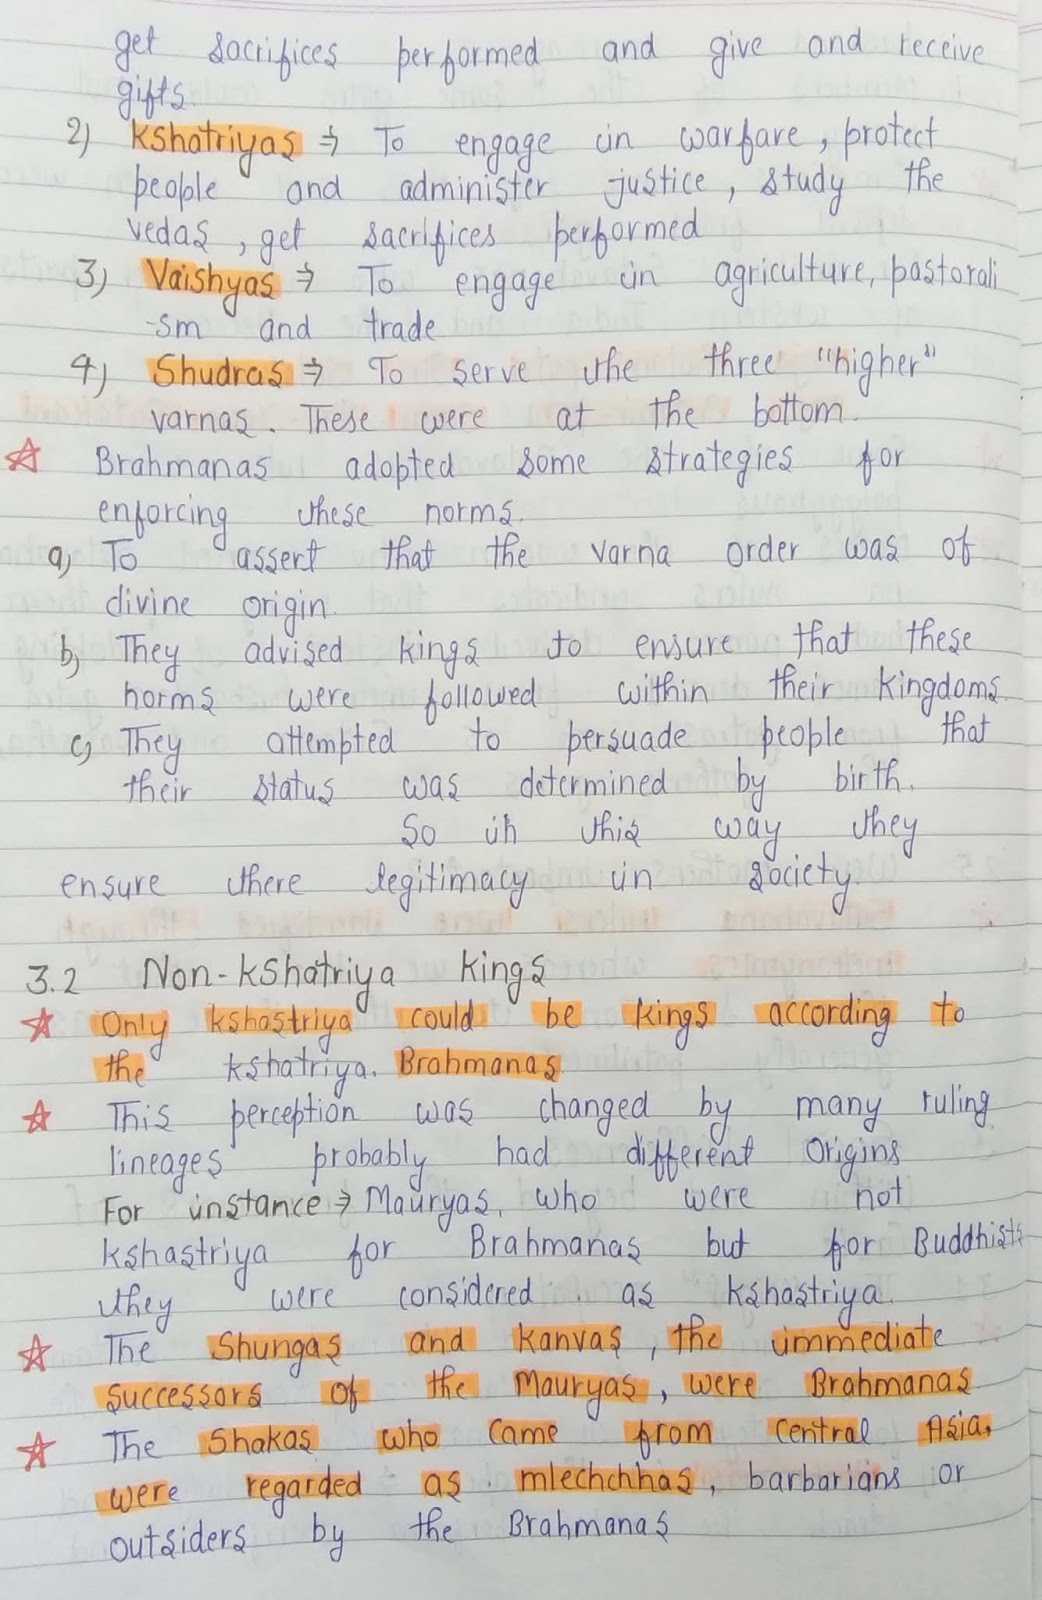 get sacrifices performed and give and receive
gifts.
2) Kshatriyas ⇒ To engage in warfare, protect
people and administer justice, study the
vedas, get sacrifices performed
3) Vaishyas ⇒ To engage in agriculture, pastorali
-sm and trade
4) Shudras ⇒ To serve the three "higher"
varnas. These were at the bottom.
☆ Brahmanas adopted some strategies for
enforcing these norms.
a) To assert that the varna order was of
divine origin.
b) They advised kings to ensure that these
norms were followed within their kingdoms.
c) They attempted to persuade people that
their status was determined by birth.
So in this way they
ensure there legitimacy in society.
3.2 Non-Kshatriya Kings
☆ Only kshastriya could be kings according to
the kshatriya. Brahmanas.
☆ This perception was changed by many ruling
lineages probably had different origins
For instance ⇒ Mauryas, who were not
kshastriya for Brahmanas but for Buddhists
they were considered as kshastriya.
☆ The Shungas and Kanvas, the immediate
successors of the Mauryas, were Brahmanas
☆ The Shakas who came from central Asia,
were regarded as mlechchhas, barbarians or
outsiders by the Brahmanas